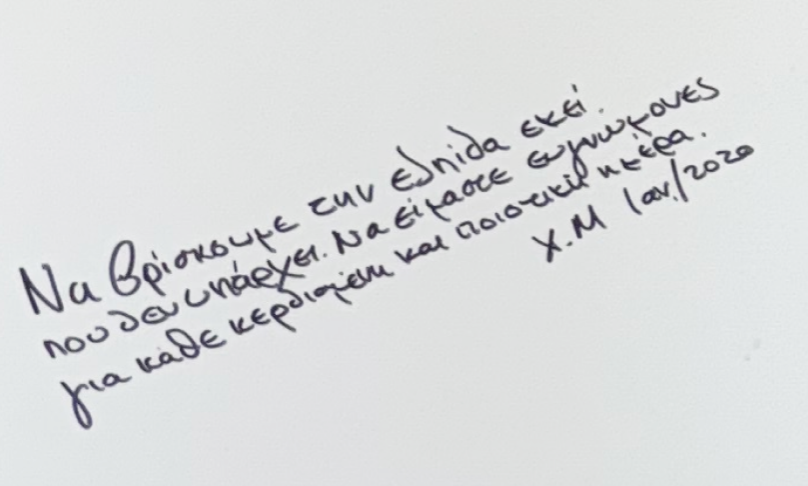 Να βρίσκουμε την ελπίδα εκεί.
που δεν υπάρχει. Να είμαστε ευγνώμονες
για κάθε κερδισμένη και ποιοτική ημέρα.
Χ.Μ Ιαν./2020